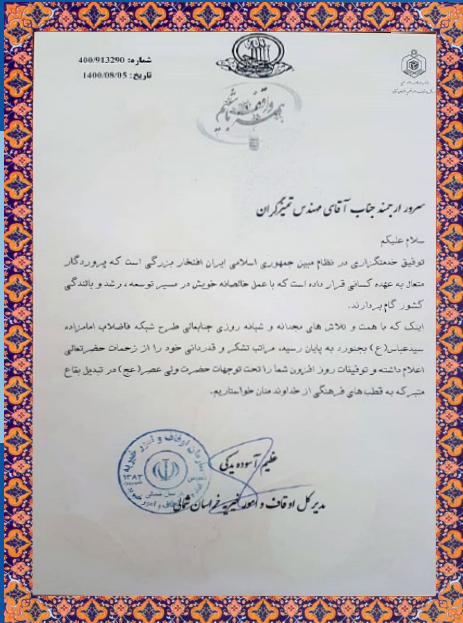 شماره: 400/913290
تاریخ: 1400/08/05
سرور ارجمند جناب آقای مهندس
سلام علیکم
توفیق خدمتگزاری در نظام مبین جمهوری اسلامی ایران افتخار بزرگی است که پروردگار
متعال به عهده کسانی قرار داده است که با عمل خالصانه خویش در مسیر توسعه، رشد و بالندگی
کشور گام بردارند.
اینک که با همت و تلاش های مجدانه و شبانه روزی جنابعالی طرح شبکه فاضلاب امامزاده
سیدعباس(ع) بجنورد به پایان رسید، مراتب تشکر و قدردانی خود را از زحمات حضرتعالی
اعلام داشته و توفیقات روز افزون شما را تحت توجهات حضرت ولی عصر(عج) در تبدیل بقاع
متبرکه به قطب های فرهنگی از خداوند منان خواستاریم.
عظیم آسوده یدکی
مدیر کل اوقاف و امور خیریه خراسان شمالی
سازمان اوقاف و امور خیریه